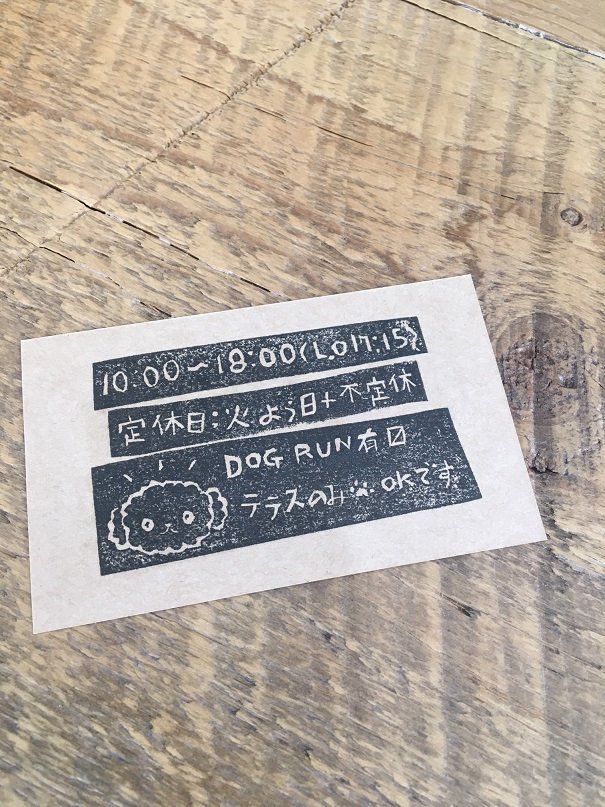 10:00〜18:00(L.O17:15)
定休日:火よう日+不定休
DOG RUN有
テラスのみOKです